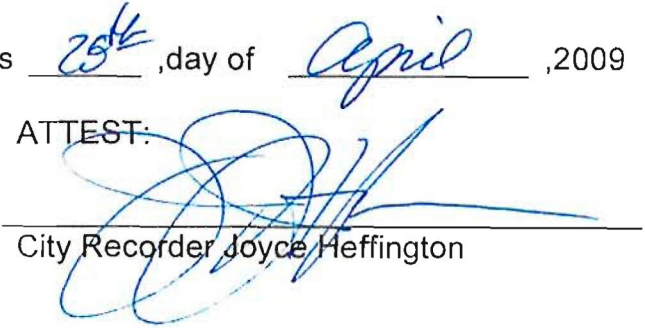 s 28th ,day of April ,2009
ATTEST:
City Recorder Joyce Heffington